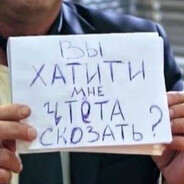 ВЫ
ХАТИТИ
МНЕ
ЧТЁТА
СКОЗАТЬ?